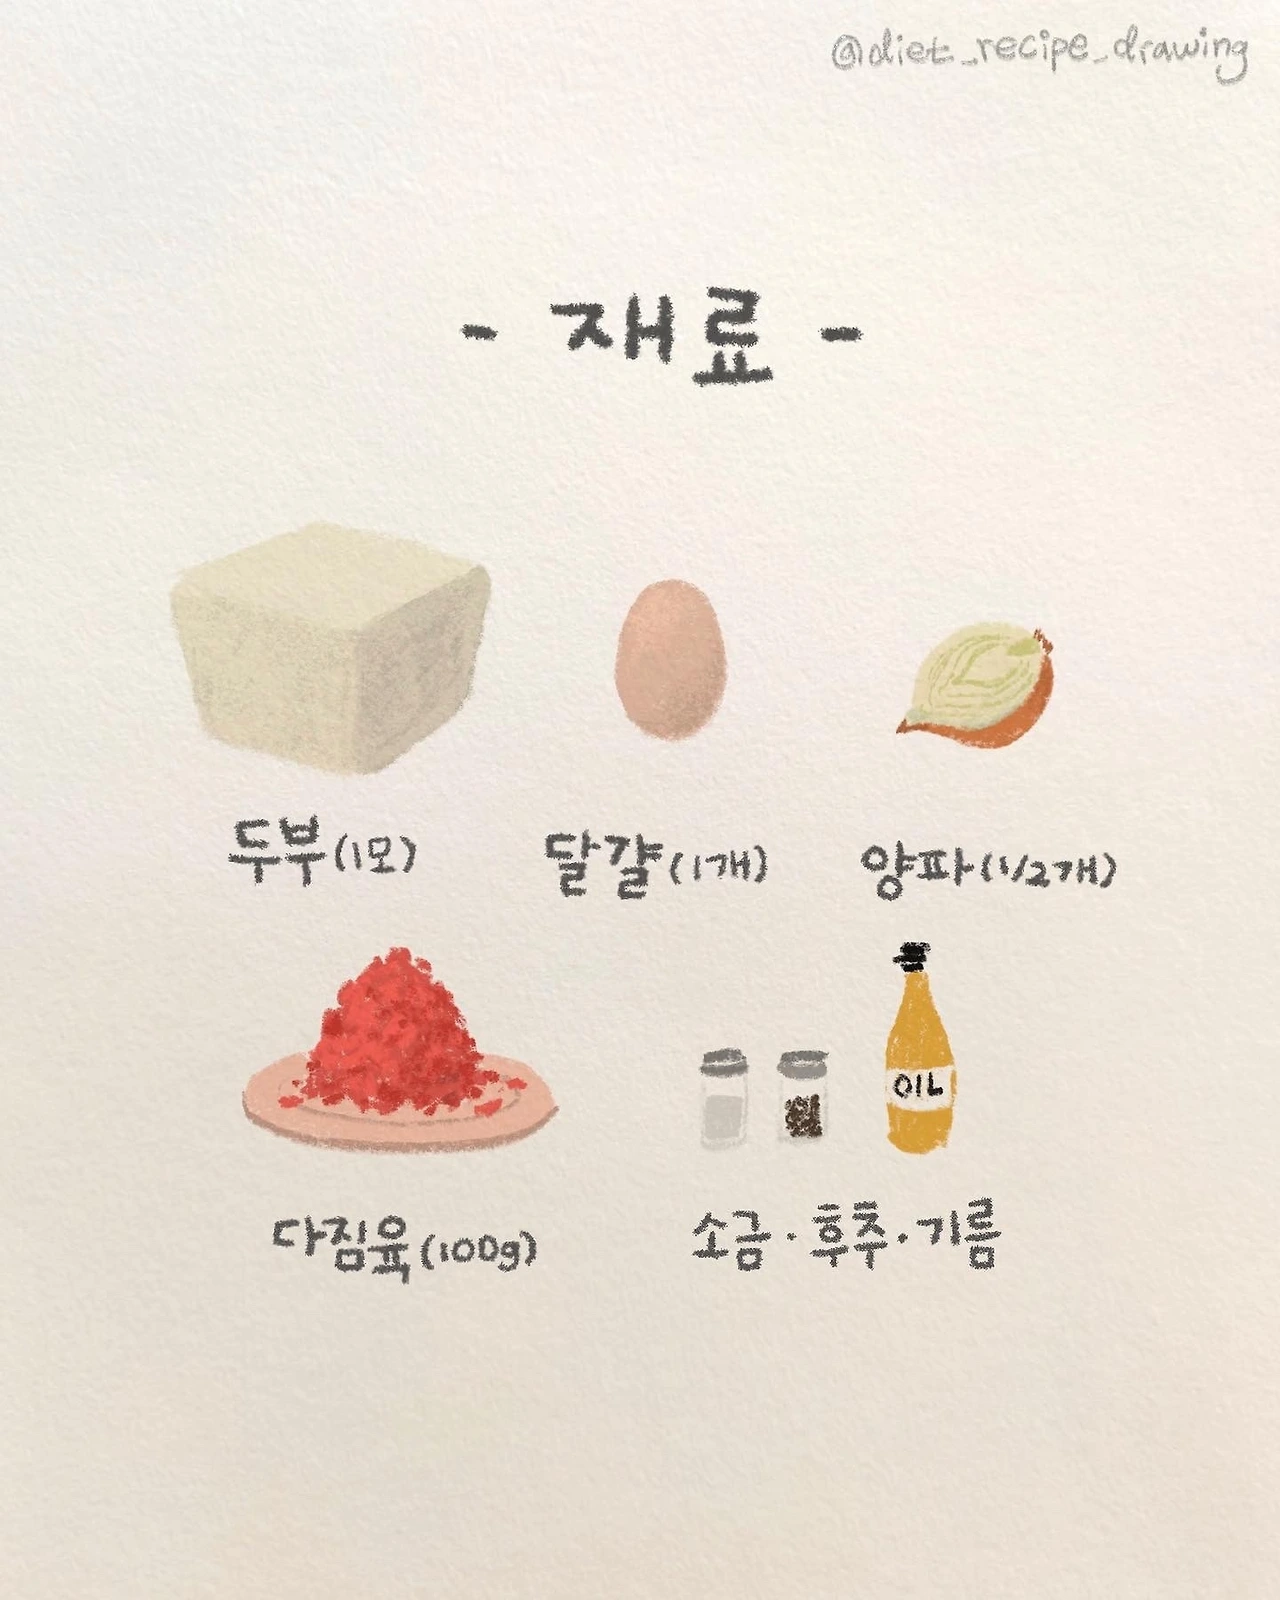 @diet_recipe_drawing
- 재료 -
두부(1모)
달걀(1개)
양파(1/2개)
OIL
다짐육(100g)
소금·후추·기름